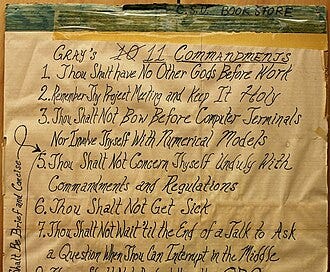 BOOK STORE
GRAY'S 10 11 COMMANDMENTS
1. Thou Shalt have No Other Gods Before Work
2. Remember Thy Project Meeting and Keep It Holy
3. Thou Shalt NOT Bow Before Computer Terminals
Nor Involve Thyself With Numerical Models
5. Thou Shalt Not Concern Thyself Unduly With
Commandments and Regulations
6. Thou Shalt Not Get Sick
7. Thou Shalt Not Wait 'til the End of a Talk to Ask
a Question When Thou Can Interrupt in the Middle
Thou Shalt Not
Shalt Be Brief and Concise